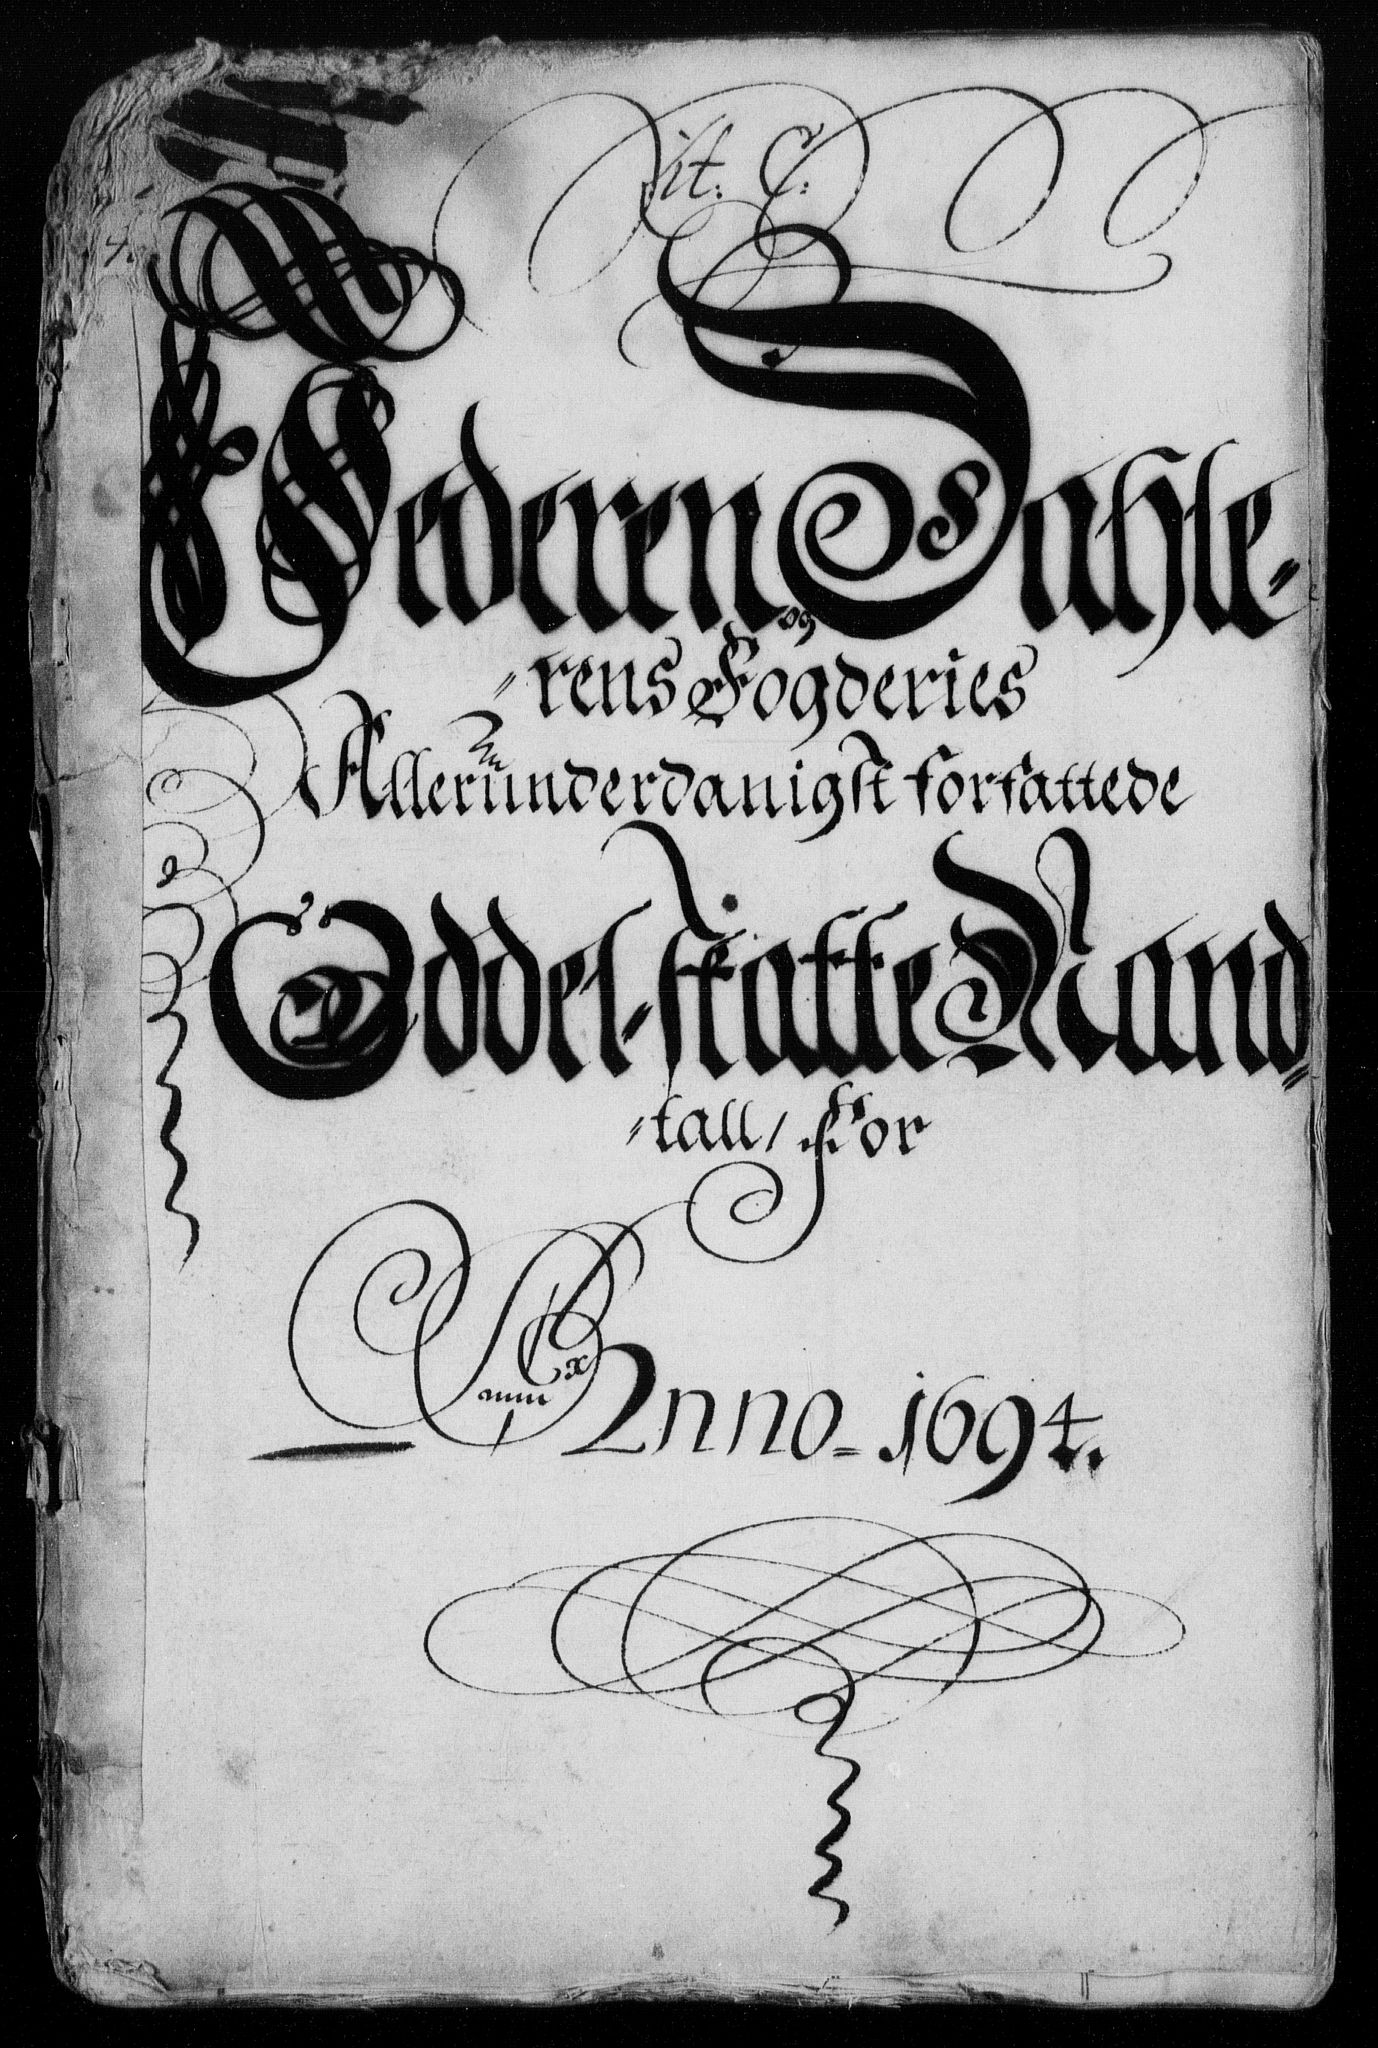 Lit. C.
Nederen og Dahle-
=rens Fogderies
Allerunderdanigst forfattede
Oddel-skatte Mand-
=tall / For
Anno - 1694.